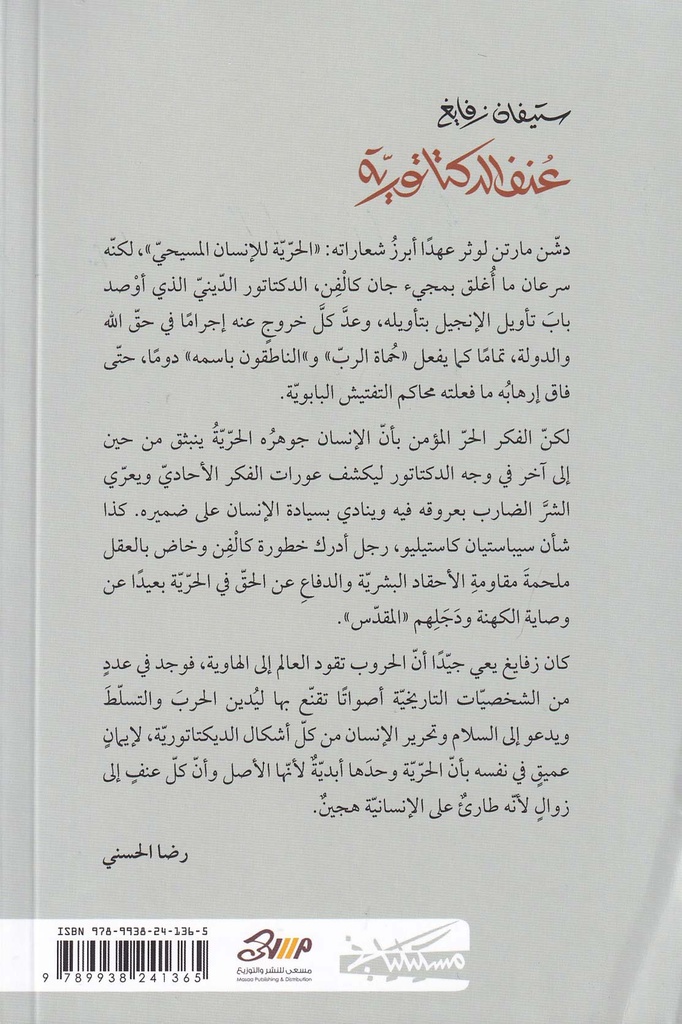 ستيفان زفايغ
عُنف الدكتاتوريّة
دشّن مارتن لوثر عهدًا أبرزُ شعاراته: «الحرّيّة للإنسان المسيحيّ»، لكنّه
سرعان ما أُغلق بمجيء جان كالْفِن، الدكتاتور الدّينيّ الذي أوْصد
بابَ تأويل الإنجيل بتأويله، وعدَّ كلَّ خروجٍ عنه إجرامًا في حقّ الله
والدولة، تمامًا كما يفعل «حُماة الربّ» و«الناطقون باسمه» دومًا، حتّى
فاق إرهابُه ما فعلته محاكم التفتيش البابويّة.
لكنّ الفكر الحرّ المؤمن بأنّ الإنسان جوهرُه الحرّيّةُ ينبثق من حين
إلى آخر في وجه الدكتاتور ليكشف عورات الفكر الأحاديّ ويعرّي
الشرَّ الضارب بعروقه فيه وينادي بسيادة الإنسان على ضميره. كذا
شأن سيباستيان كاستيليو، رجل أدرك خطورة كالْفِن وخاض بالعقل
ملحمةَ مقاومةِ الأحقاد البشريّة والدفاعِ عن الحقّ في الحرّيّة بعيدًا عن
وصاية الكهنة ودَجَلِهم «المقدّس».
كان زفايغ يعي جيّدًا أنّ الحروب تقود العالم إلى الهاوية، فوجد في عددٍ
من الشخصيّات التاريخيّة أصواتًا تقنّع بها ليُدين الحربَ والتسلّطَ
ويدعو إلى السلام وتحرير الإنسان من كلّ أشكال الديكتاتوريّة، لإيمانٍ
عميقٍ في نفسه بأنّ الحرّيّة وحدَها أبديّةٌ لأنّها الأصل وأنّ كلّ عنفٍ إلى
زوالٍ لأنّه طارئٌ على الإنسانيّة هجينٌ.
رضا الحسني
ISBN 978-9938-24-136-5
9 789938 241365
مسعى
مسعى للنشر والتوزيع
Masaa Publishing & Distribution